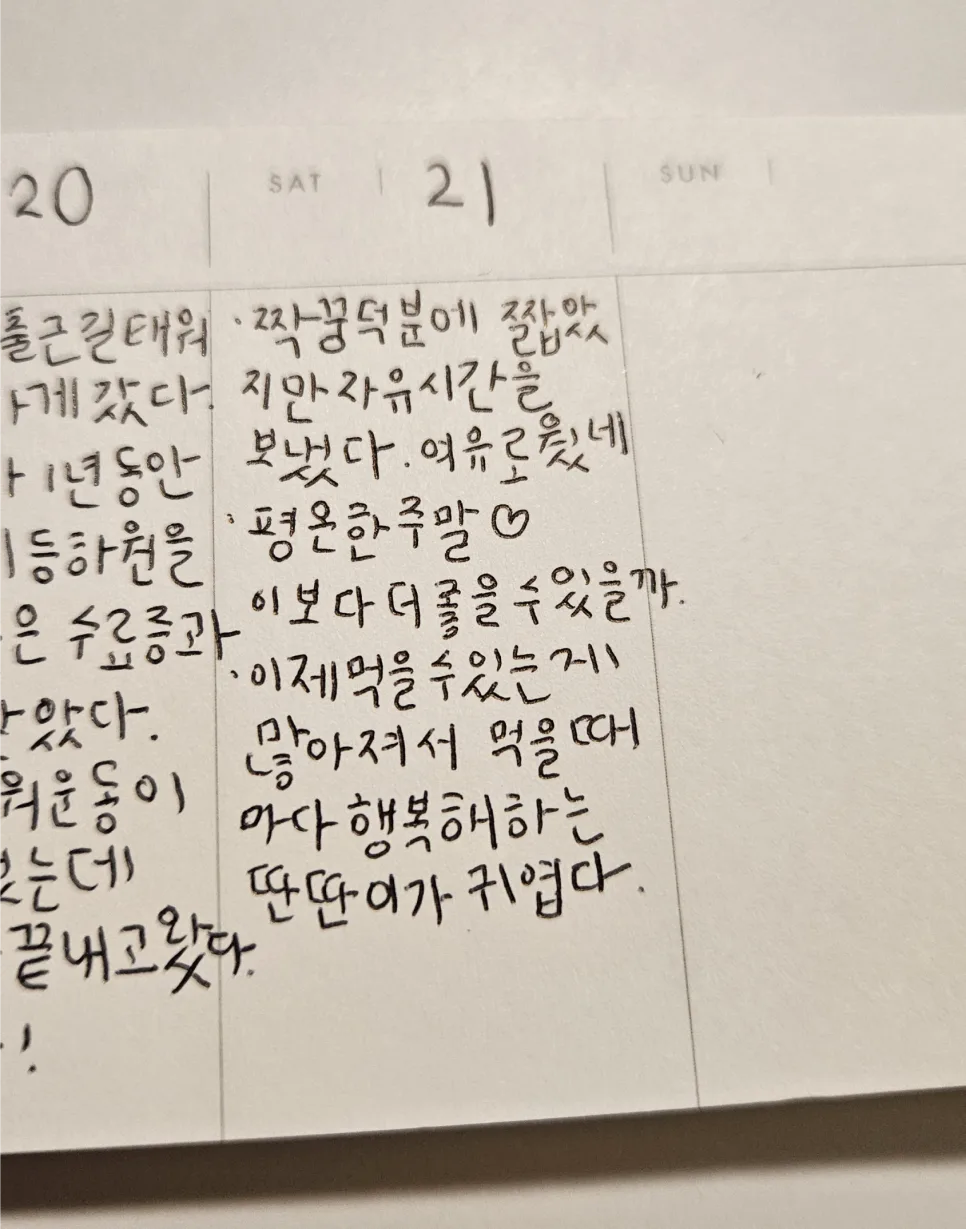 20
출근길태워
게 갔다.
1년동안
등하원을
은 수료증과
았다.
운동이
는데
끝내고왔다.
!
SAT 21
·짝꿍덕분에 짧았
지만 자유시간을
보냈다. 여유로웠네
·평온한 주말♡
이보다 더 좋을 수 있을까.
·이제 먹을 수 있는 게
많아져서 먹을 때
마다 행복해하는
딴딴이가 귀엽다.
SUN